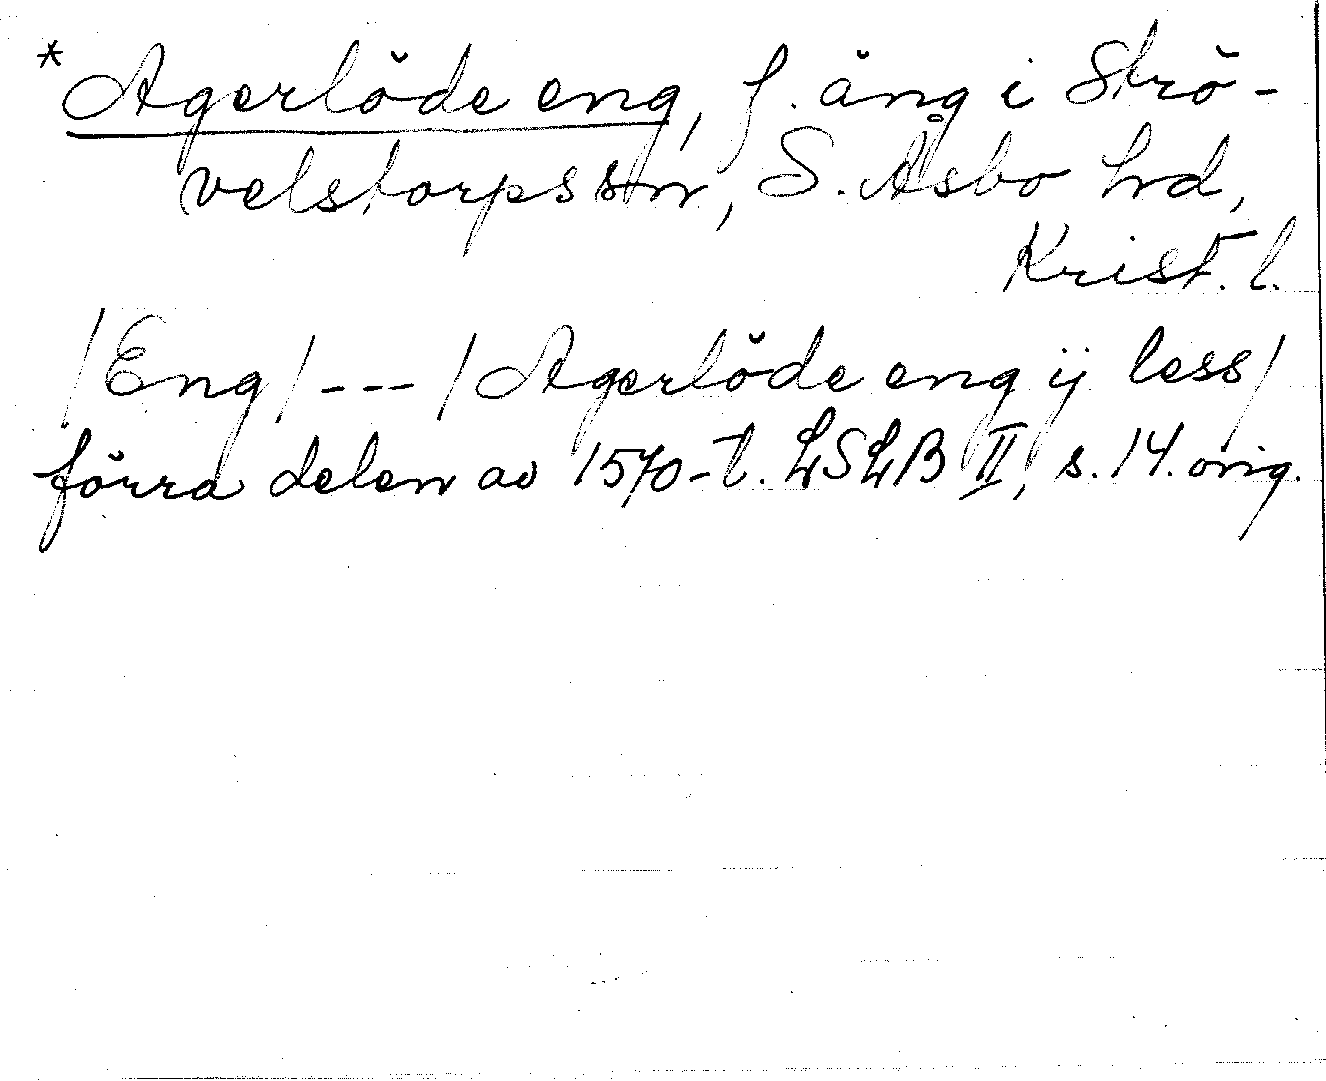 *Agerlöde eng, f. äng i Strö-
velstorps sn, S. Åsbo hd,
Krist. l.
/Eng/---/Agerlöde eng ij less/
förra delen av 1570-t. LSLB II, s. 14. orig.